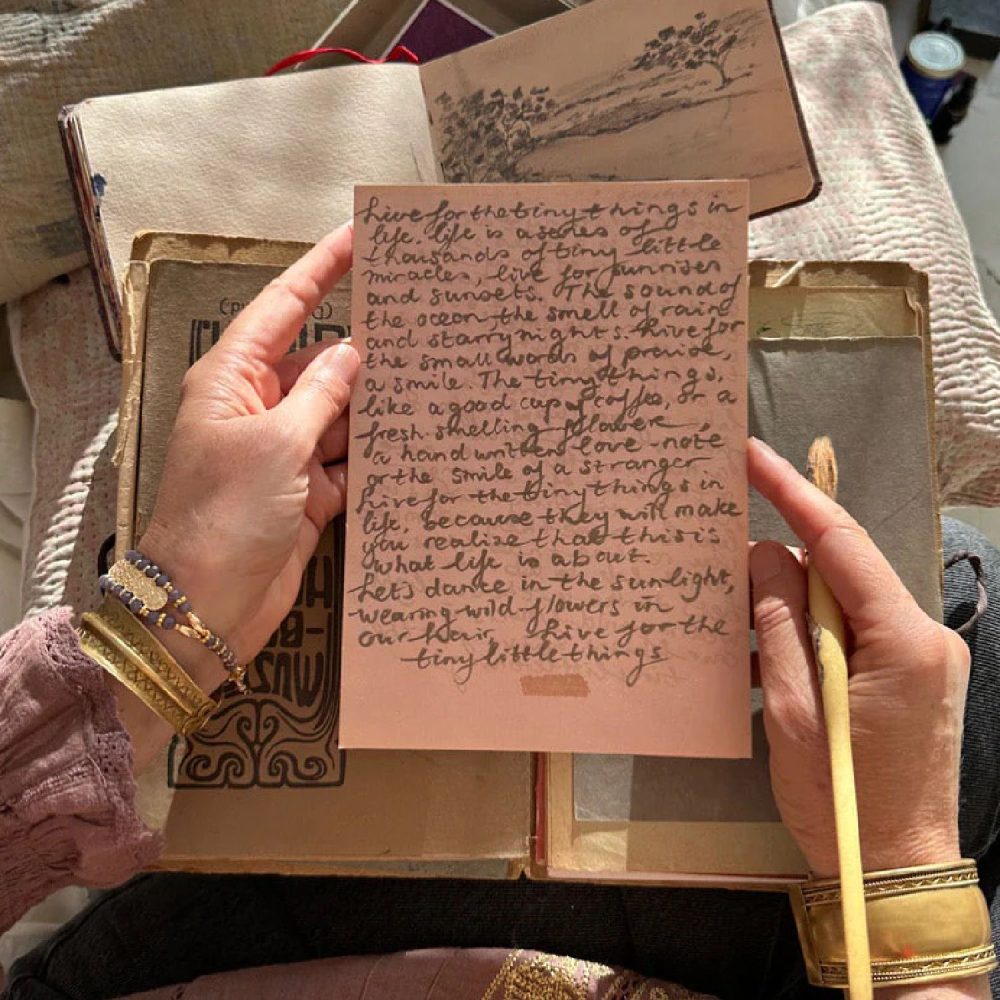 Live for the tiny things in
life. Life is a series of
thousands of tiny little
miracles, live for sunrises
and sunsets. The sound of
the ocean, the smell of rain
and starry nights. Live for
the small words of praise,
a smile. The tiny things,
like a good cup of coffee, or a
fresh smelling flower
a hand written love-note
or the smile of a stranger
Live for the tiny things in
life, because they will make
you realize that this is
what life is about.
Let's dance in the sunlight,
wearing wild flowers in
our hair. Live for the
tiny little things